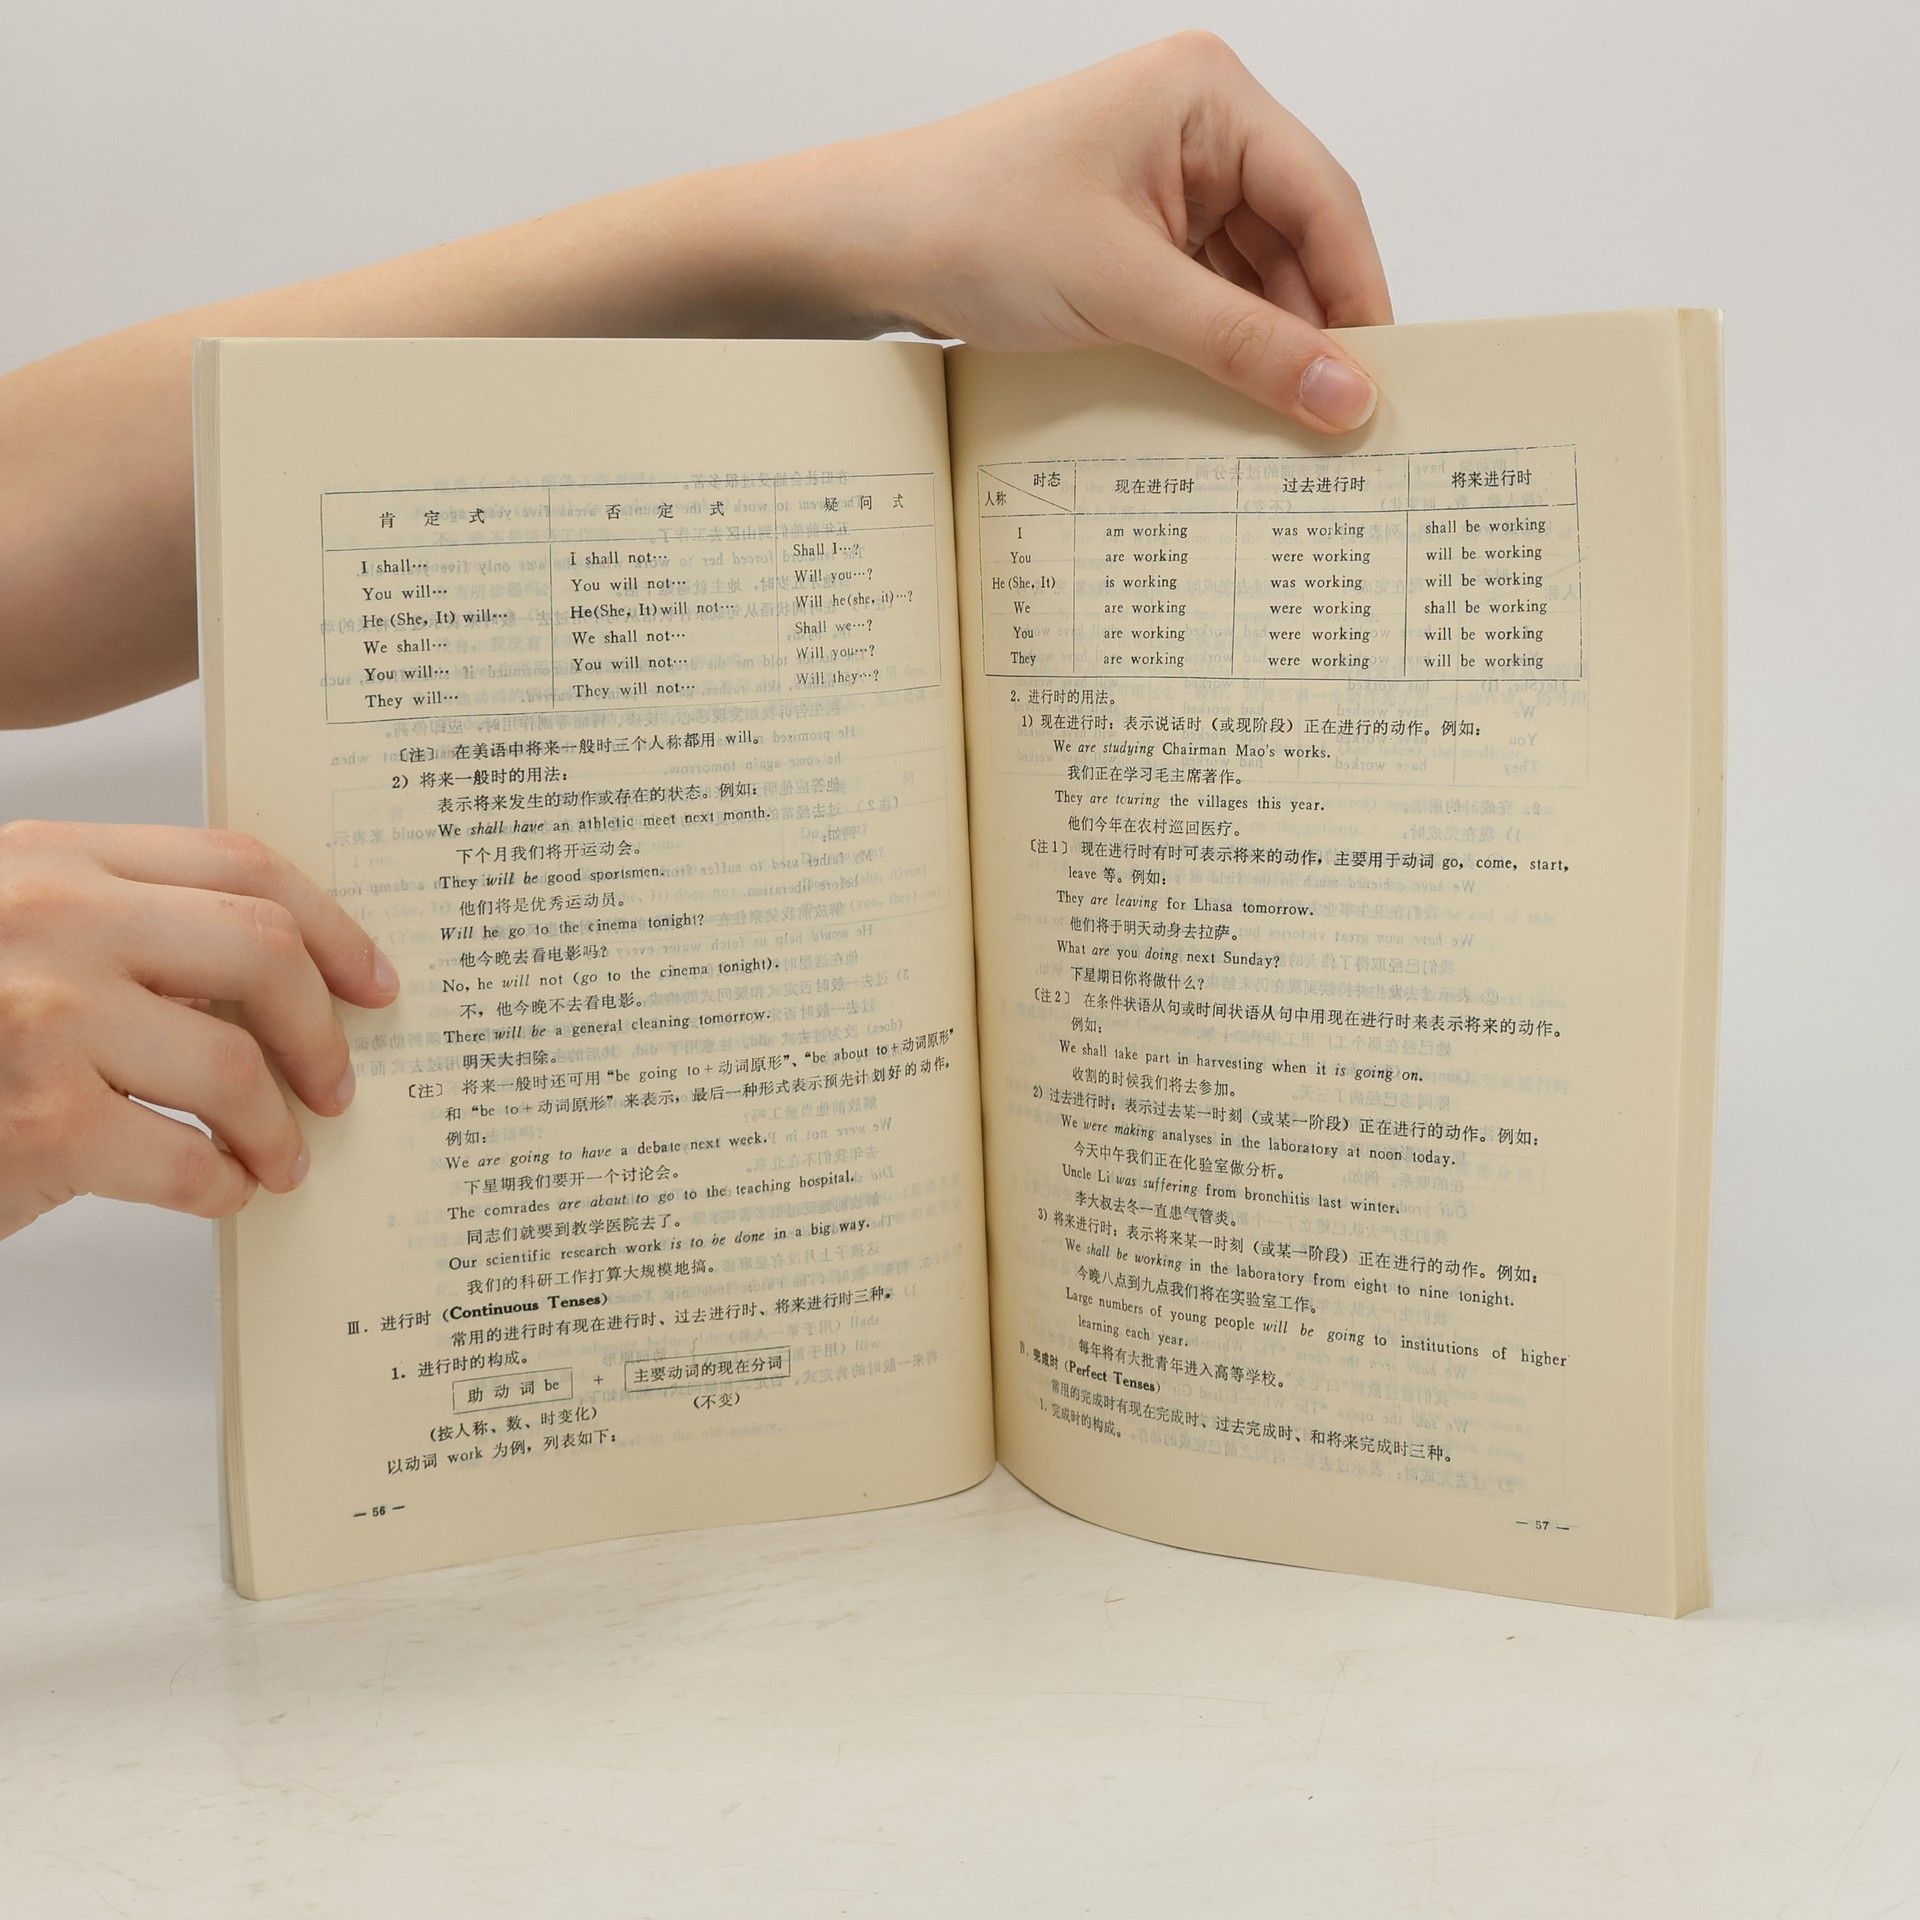 肯 定 式 否 定 式 疑 问 式
I shall… I shall not… Shall I…?
You will… You will not… Will you…?
He (She, It) will… He(She, It)will not… Will he(she, it)…?
We shall… We shall not… Shall we…?
You will… You will not… Will you…?
They will… They will not… Will they…?
〔注〕 在美语中将来一般时三个人称都用 will。
2) 将来一般时的用法:
表示将来发生的动作或存在的状态。例如:
We shall have an athletic meet next month.
下个月我们将开运动会。
They will be good sportsmen.
他们将是优秀运动员。
Will he go to the cinema tonight?
他今晚去看电影吗?
No, he will not (go to the cinema tonight).
不, 他今晚不去看电影。
There will be a general cleaning tomorrow.
明天大扫除。
〔注〕 将来一般时还可用“be going to+动词原形”、“be about to+动词原形”
和 “be to+动词原形” 来表示, 最后一种形式表示预先计划好的动作。
例如:
We are going to have a debate next week.
下星期我们要开一个讨论会。
The comrades are about to go to the teaching hospital.
同志们就要到教学医院去了。
Our scientific research work is to be done in a big way.
我们的科研工作打算大规模地搞。
III. 进行时 (Continuous Tenses)
常用的进行时有现在进行时、过去进行时、将来进行时三种。
1. 进行时的构成。
助 动 词 be + 主要动词的现在分词
(按人称、数、时变化) (不变)
以动词 work 为例, 列表如下:
— 56 —
时态 人称 现在进行时 过去进行时 将来进行时
I am working was working shall be working
You are working were working will be working
He (She, It) is working was working will be working
We are working were working shall be working
You are working were working will be working
They are working were working will be working
2. 进行时的用法。
1) 现在进行时: 表示说话时 (或现阶段) 正在进行的动作。例如:
We are studying Chairman Mao's works.
我们正在学习毛主席著作。
They are touring the villages this year.
他们今年在农村巡回医疗。
〔注1〕 现在进行时有时可表示将来的动作, 主要用于动词 go, come, start,
leave 等。例如:
They are leaving for Lhasa tomorrow.
他们将于明天动身去拉萨。
What are you doing next Sunday?
下星期日你将做什么?
〔注2〕 在条件状语从句或时间状语从句中用现在进行时来表示将来的动作。
例如:
We shall take part in harvesting when it is going on.
收割的时候我们将去参加。
2) 过去进行时: 表示过去某一时刻 (或某一阶段) 正在进行的动作。例如:
We were making analyses in the laboratory at noon today.
今天中午我们正在化验室做分析。
Uncle Li was suffering from bronchitis last winter.
李大叔去冬一直患气管炎。
3) 将来进行时: 表示将来某一时刻 (或某一阶段) 正在进行的动作。例如:
We shall be working in the laboratory from eight to nine tonight.
今晚八点到九点我们将在实验室工作。
Large numbers of young people will be going to institutions of higher
learning each year.
每年将有大批青年进入高等学校。
IV. 完成时 (Perfect Tenses)
常用的完成时有现在完成时、过去完成时、和将来完成时三种。
1. 完成时的构成。
— 57 —